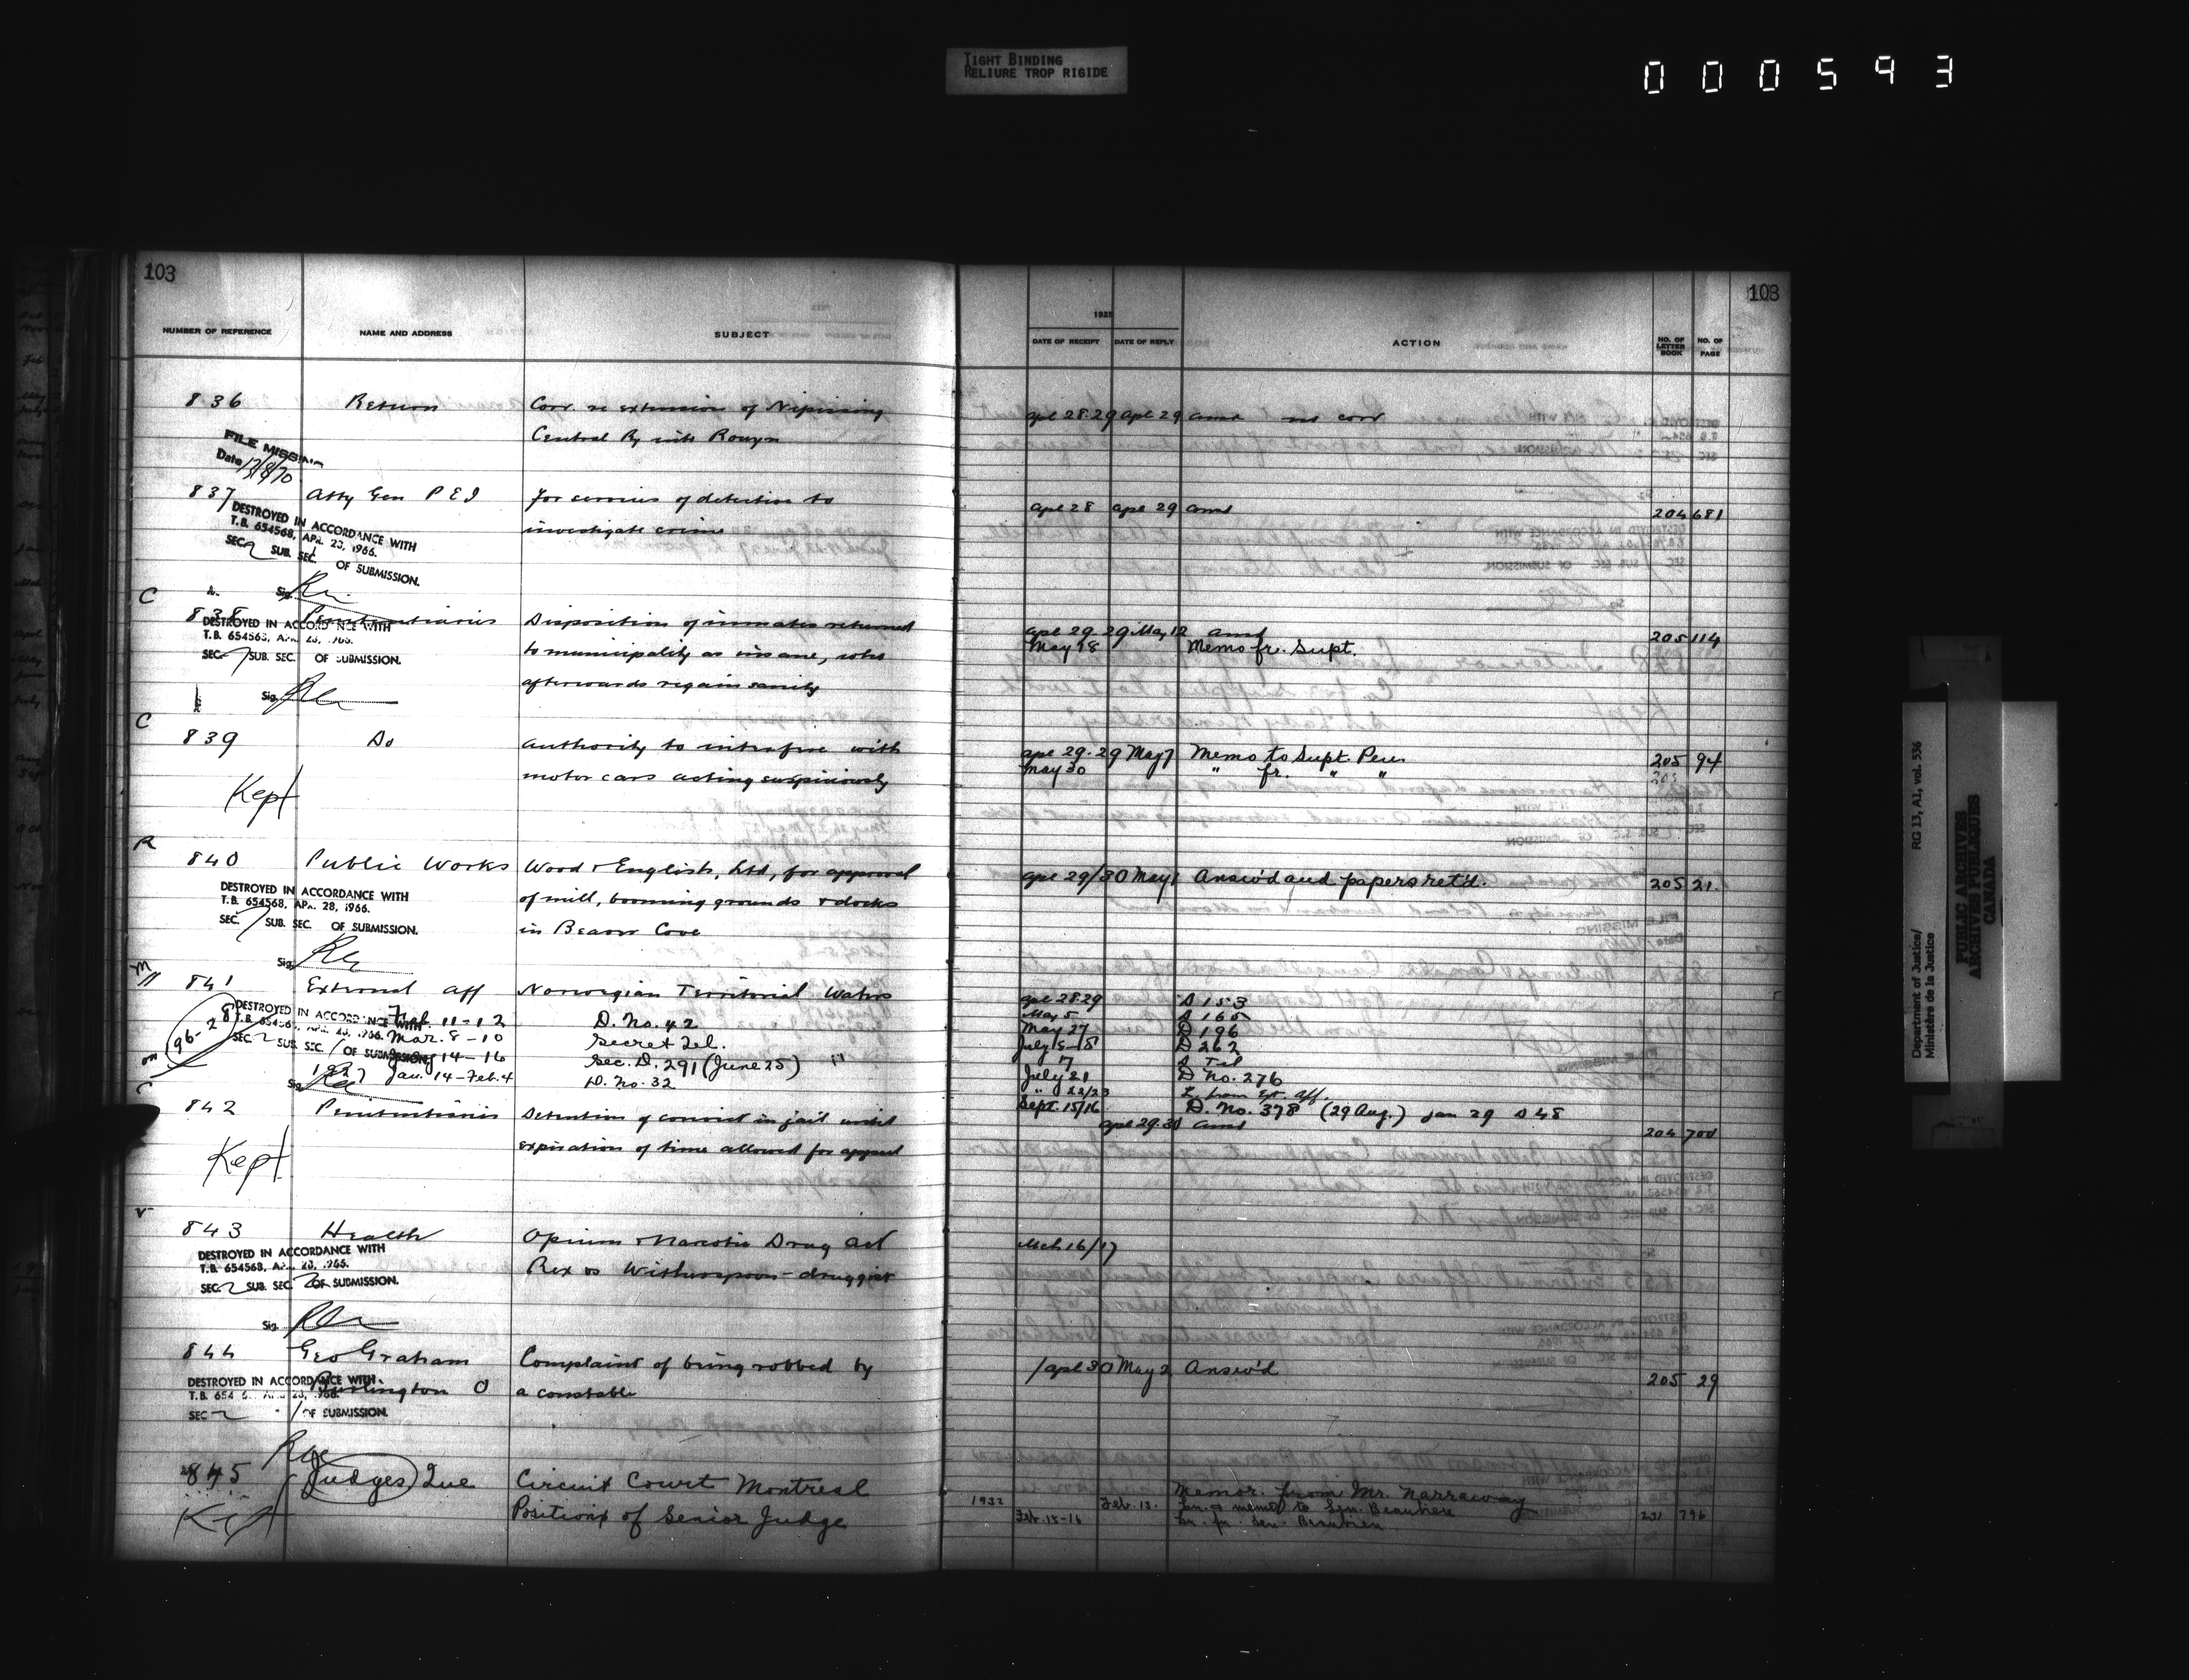 TIGHT BINDING
RELIURE TROP RIGIDE
000593
103
103
NUMBER OF REFERENCE NAME AND ADDRESS SUBJECT
1925
DATE OF RECEIPT DATE OF REPLY ACTION NO. OF LETTER BOOK NO. OF PAGE
836 Return Corr. re extension of Nipissing apl 28.29 apl 29 no corr
Central Ry into Rouyn
FILE MISSING
Date 13/8/70
837 Atty Gen P E I For services of detective to apl 28 apl 29 204 681
investigate crime
DESTROYED IN ACCORDANCE WITH
T.B. 654568, APR. 28, 1966.
SEC. 2 SUB. SEC. 1 OF SUBMISSION.
Sig.
C
838 Penitentiaries Disposition of inmates returned apl 29-29 May 12 205 114
to municipality as insane, who May 18 Memo fr. Supt.
afterwards regain sanity
DESTROYED IN ACCORDANCE WITH
T.B. 654568, APR. 28, 1966.
SEC. SUB. SEC. OF SUBMISSION.
Sig.
C
839 Do Authority to interfere with apl 29-29 May 7 Memo to Supt. Pen 205 94
motor cars acting suspiciously May 30 " fr. " "
Kept
R
840 Public Works Wood & English, Ltd, for approval apl 29/30 May 1 Answ'd and papers ret'd. 205 21.
of mill, booming grounds & docks
in Beaver Cove
DESTROYED IN ACCORDANCE WITH
T.B. 654568, APR. 28, 1966.
SEC. / SUB. SEC. OF SUBMISSION.
Sig.
841 External Aff Norwegian Territorial Waters apl 28.29 D 153
Feb. 11-12 D. No. 42 May 5 D 165
Mar. 8-10 Secret Tel. May 27 D 196
14-16 Sec. D. 291 (June 25) D 262
1927 Jan. 14-Feb. 4 D. No. 32 7 Tel
July 21 D No. 276
" 22/23 L. from Ext. Aff.
Sept. 15/16 D. No. 378 (29 Aug.) Jan 29 D 48
DESTROYED IN ACCORDANCE WITH
T.B. 654568, APR. 28, 1966.
SEC. 2 SUB. SEC. / OF SUBMISSION.
Sig.
C
842 Penitentiaries Detention of convict in jail until apl 29.30 204 700
expiration of time allowed for appeal
Kept
843 Health Opium & Narcotic Drug Act Mch 16/17
Rex vs Witherspoon - druggist
DESTROYED IN ACCORDANCE WITH
T.B. 654568, APR. 28, 1966.
SEC. 2 SUB. SEC. 2 OF SUBMISSION.
Sig.
844 Geo Graham Complaint of being robbed by / apl 30 May 2 Answ'd 205 29
Burlington O a constable
DESTROYED IN ACCORDANCE WITH
T.B. 654568, APR. 28, 1966.
SEC. 2 / OF SUBMISSION.
845 Judges Que Circuit Court Montreal Memor. from Mr. Narraway
Position of Senior Judge 1932 Feb. 13. Ln. & memo to Sen. Beaubien 231 796
Feb. 15-16 Ln. fr. Sen. Beaubien
Kept
Department of Justice/
Ministère de la Justice
RG 13, A1, vol. 536
PUBLIC ARCHIVES
ARCHIVES PUBLIQUES
CANADA